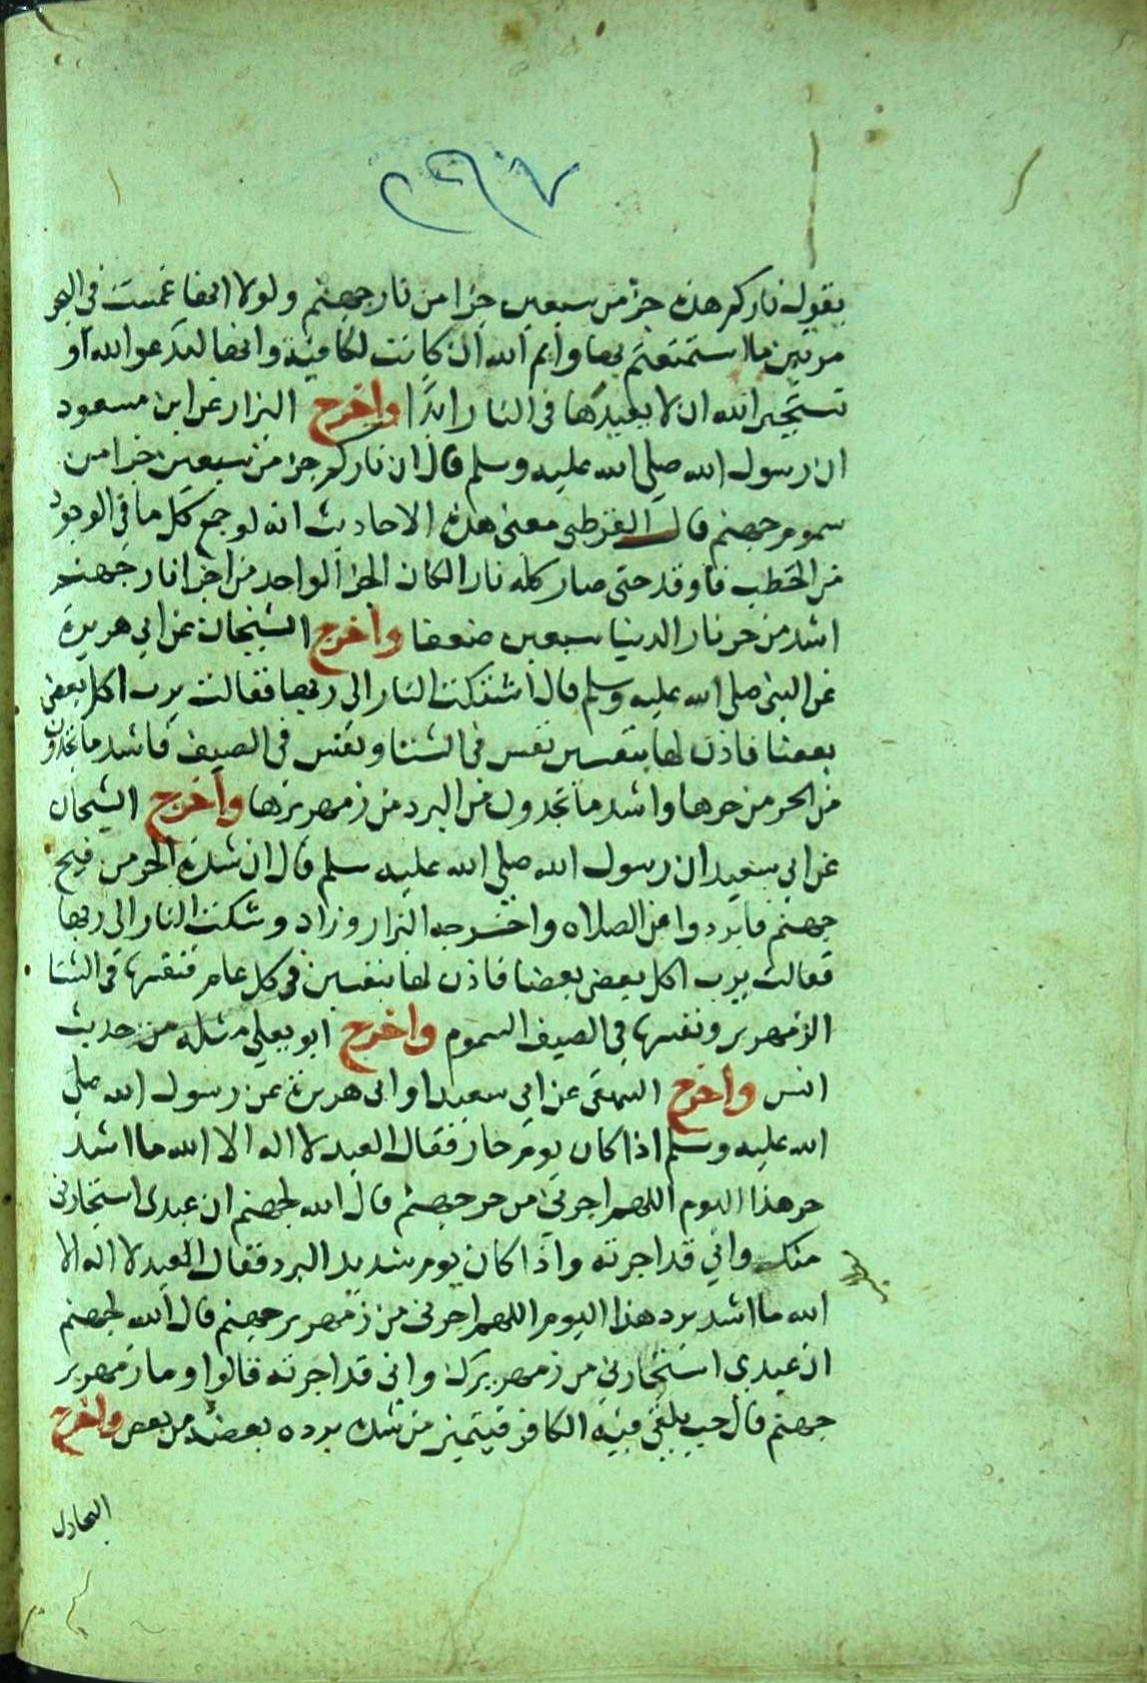 ٢٩٧
يقول ناركم هذه جزء من سبعين جزا من نار جهنم ولولا انها غمست في البحر
مرتين ما استمتعتم بها وايم الله ان كانت لكافية وانها لتدعو الله او
تستجير الله ان لا يعيدها في النار ابدا واخرج البزار عن ابن مسعود
ان رسول الله صلى الله عليه وسلم قال ان ناركم جز من سبعين جزا من
سموم جهنم قال القرطبي معنى هذه الاحاديث انه لو جمع كل ما في الوجود
من الحطب فاوقد حتى صار كله نارا لكان الجز الواحد من اجزا نار جهنم
اشد من حر نار الدنيا سبعين ضعفا واخرج الشيخان عن ابي هريرة
عن النبي صلى الله عليه وسلم قال اشتكت النار الى ربها فقالت يرب اكل بعضى
بعضا فاذن لها بنفسين نفس في الشتا ونفس في الصيف فاشد ما تجدون
من الحر من حرها واشد ما تجدون من البرد من زمهريرها واخرج الشيخان
عن ابي سعيد ان رسول الله صلى الله عليه سلم قال ان شدة الحر من فيح
جهنم فابردوا عن الصلاه واخرجه البزار وزاد وشكت النار الى ربها
فقالت يرب اكل بعضى بعضا فاذن لها بنفسين في كل عام فنفسها في الشتا
الزمهرير ونفسها في الصيف السموم واخرج ابو يعلى مثله من حديث
انس واخرج البيهقى عن ابي سعيد او ابي هريرة عن رسول الله صلى
الله عليه وسلم اذا كان يوم حار فقال العبد لا اله الا الله ما اشد
حر هذا اليوم اللهم اجرني من حر جهنم قال الله لجهنم ان عبدى استجارني
منك واني قد اجرته واذا كان يوم شديد البرد فقال العبد لا اله الا
الله ما اشد برد هذا اليوم اللهم اجرني من زمهرير جهنم قال الله لجهنم
ان عبدي استجارني من زمهريرك واني قد اجرته قالوا وما زمهرير
جهنم قال جب يلقى فيه الكافر فيتميز من شدة برده بعضه من بعض واخرج